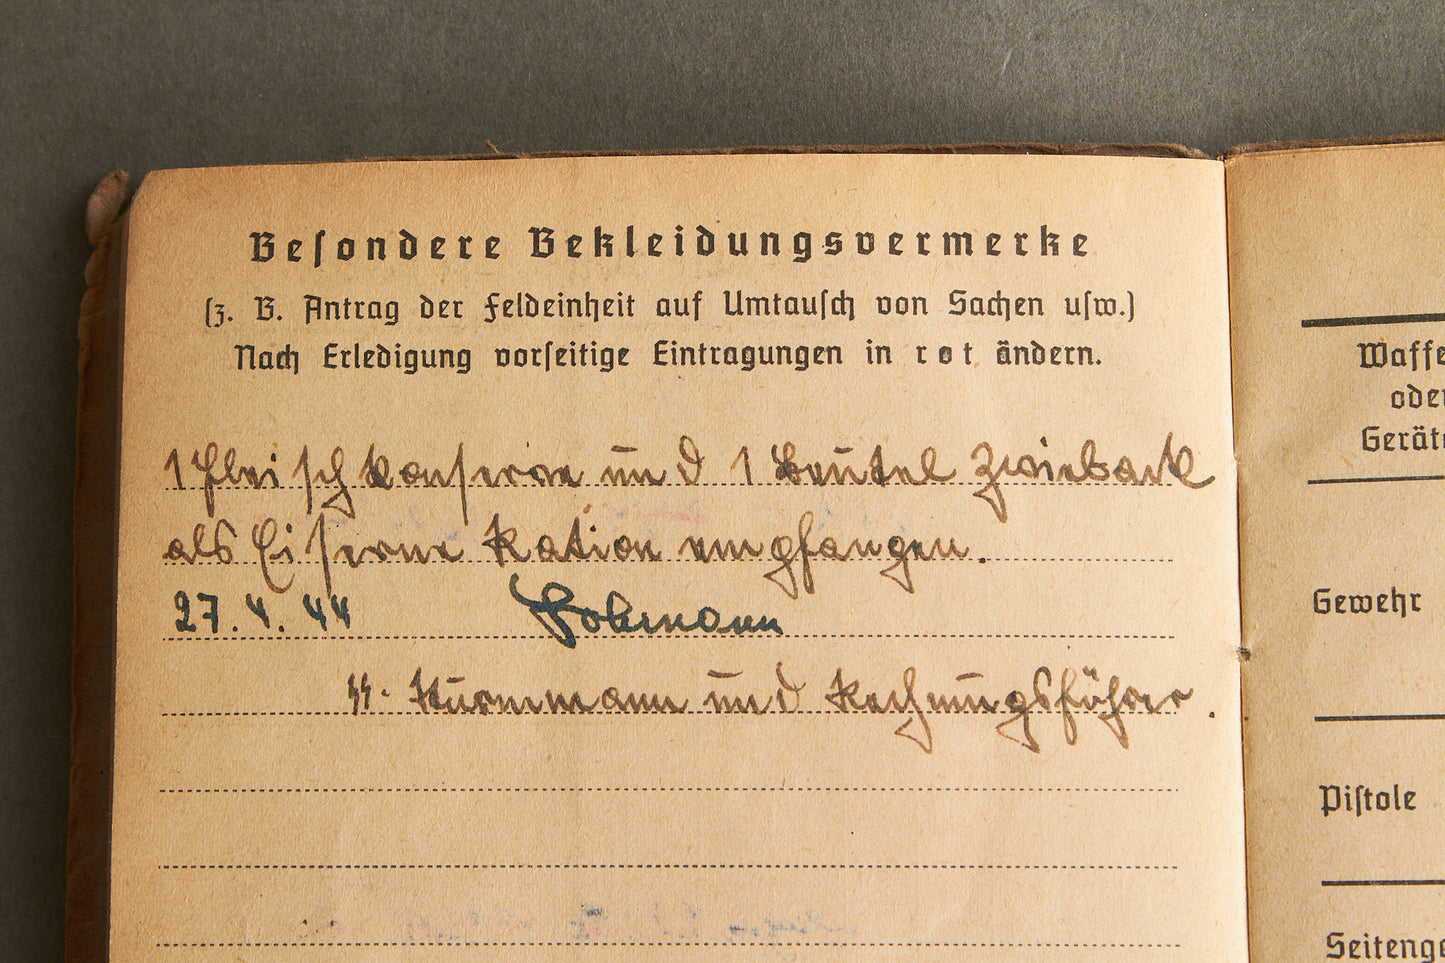 Besondere Bekleidungsvermerke
(z. B. Antrag der Feldeinheit auf Umtausch von Sachen usw.)
Nach Erledigung vorseitige Eintragungen in rot ändern.
1 Fleischkonserve und 1 Beutel Zwieback
als Eiserne Ration empfangen.
27.4.44
SS-Sturmmann und Rechnungsführer.
Waffe
oder
Gerät
Gewehr
Pistole
Seitenge